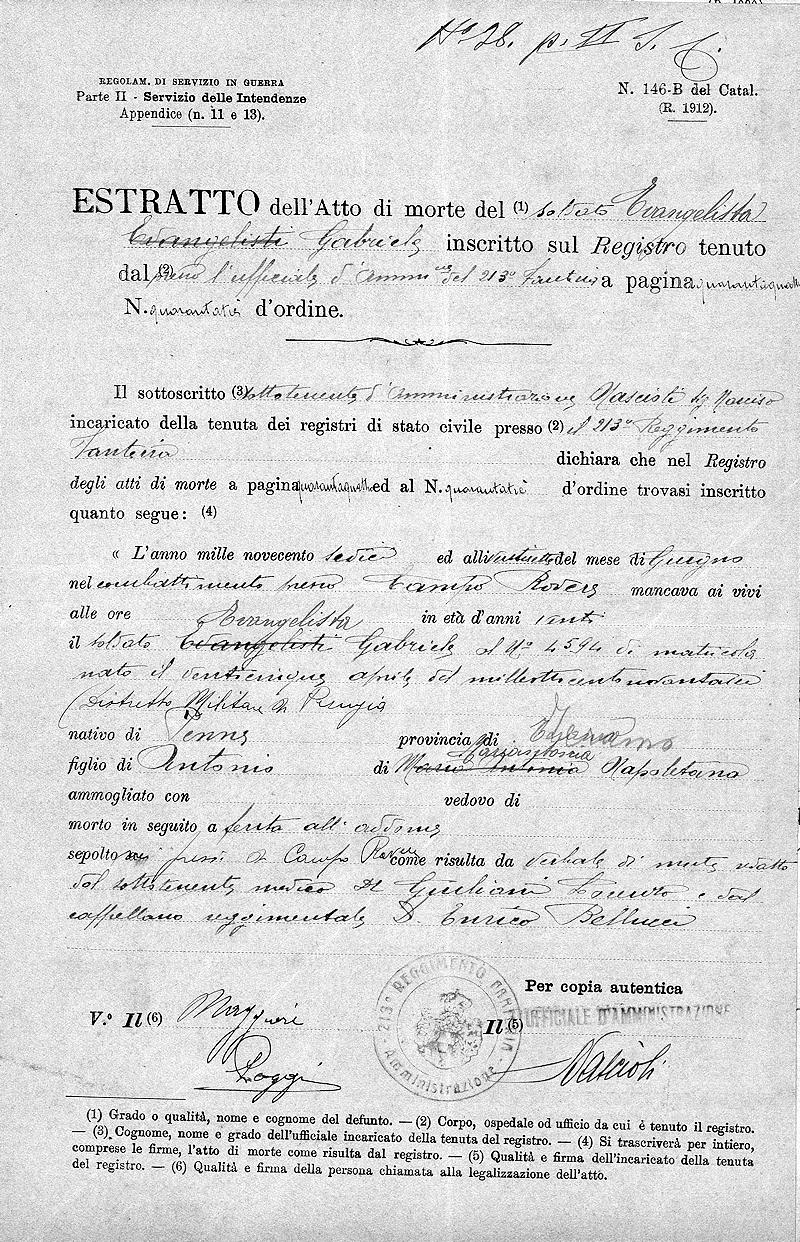 N° 28. p. II S. C.
REGOLAM. DI SERVIZIO IN GUERRA
Parte II - Servizio delle Intendenze
Appendice (n. 11 e 13).
N. 146-B del Catal.
(R. 1912).
ESTRATTO dell'Atto di morte del (1) soldato Evangelista
Evangelisti Gabriele inscritto sul Registro tenuto
dal (2) l'ufficiale d'Amm del 213° Fanteria a pagina
N. quarantatrè d'ordine.
Il sottoscritto (3) sottotenente d'amministrazione Nascioli Sig. Narciso
incaricato della tenuta dei registri di stato civile presso (2) il 213° Reggimento
Fanteria dichiara che nel Registro
degli atti di morte a pagina ed al N. quarantatrè d'ordine trovasi inscritto
quanto segue: (4)
« L'anno mille novecento sedici ed alli ventiotto del mese di Giugno
nel combattimento presso Campo Rovere mancava ai vivi
alle ore in età d'anni venti
Evangelista
il soldato Evangelisti Gabriele al N° 4594 di matricola
nato il venticinque aprile del milleottocentonovantasei
(Distretto Militare di Perugia
nativo di Penne provincia di Teramo
figlio di Antonio di Maria Antonia Napoletano
ammogliato con vedovo di
morto in seguito a ferita all'addome
sepolto nei pressi di Campo Rovere come risulta da verbale di morte redatto
dal sottotenente medico Dr Giuliani e dal
cappellano reggimentale D. Enrico Bellucci
Per copia autentica
V.° Il (6) Maggiore
213° REGGIMENTO FANTERIA · Amministrazione
Il (5) UFFICIALE D'AMMINISTRAZIONE
Poggi
Nascioli
(1) Grado o qualità, nome e cognome del defunto. — (2) Corpo, ospedale od ufficio da cui è tenuto il registro.
— (3) Cognome, nome e grado dell'ufficiale incaricato della tenuta del registro. — (4) Si trascriverà per intiero,
comprese le firme, l'atto di morte come risulta dal registro. — (5) Qualità e firma dell'incaricato della tenuta
del registro. — (6) Qualità e firma della persona chiamata alla legalizzazione dell'atto.